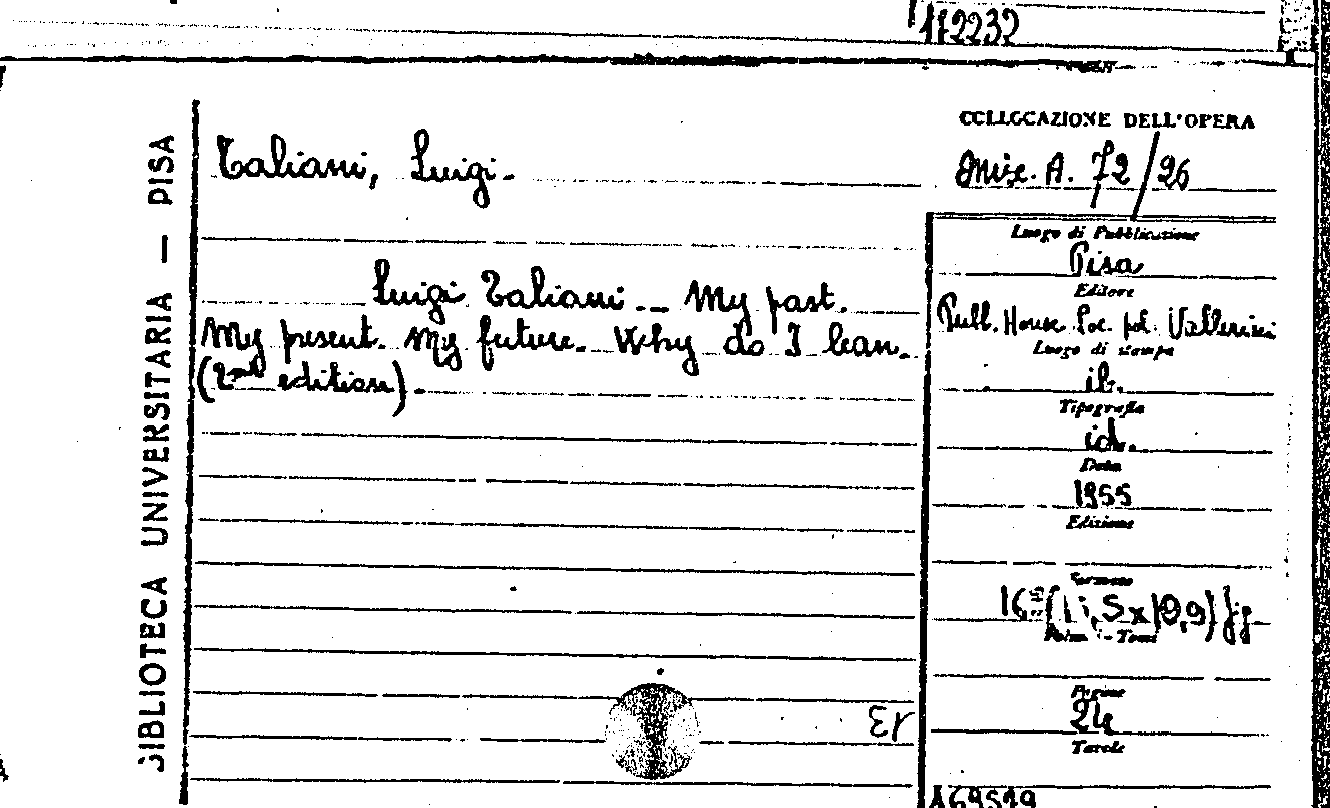 172232
BIBLIOTECA UNIVERSITARIA — PISA
Taliani, Luigi.
COLLOCAZIONE DELL'OPERA
Misc. A. 72/26
Luigi Taliani. _ My past.
My present. My future. Why do I lean.
(2nd edition).
Luogo di Pubblicazione
Pisa
Editore
Publ. House Soc. pol. Vallerini
Luogo di stampa
ib.
Tipografia
id.
Data
1955
Edizione
Formato
Volumi - Tomi
Pagine
24
Tavole
Er
A69519